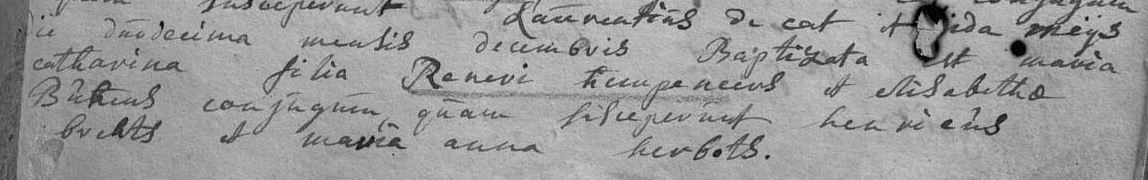 susceperunt Laurentius de cat et ida meijs
ie duodecima mensis decembris Baptizata est maria
catharina filia Reneri kempeneers et elisabetha
conjugum, quam susceperunt henricus
brents et maria anna herbots.